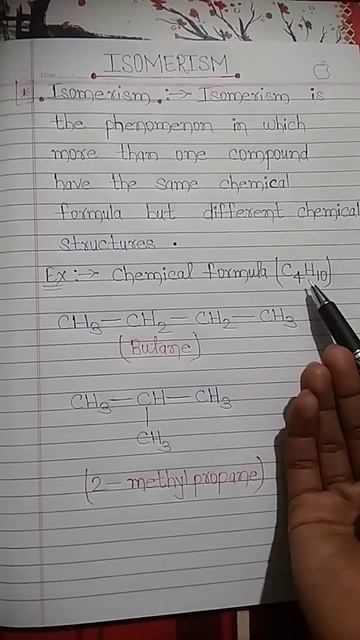 ISOMERISM
Isomerism :→ Isomerism is
the phenomenon in which
more than one compound
have the same chemical
formula but different chemical
structures .
Ex :→ Chemical formula (C₄H₁₀)
CH₃—CH₂—CH₂—CH₃
(Butane)
CH₃—CH—CH₃
|
CH₃
(2-methylpropane)